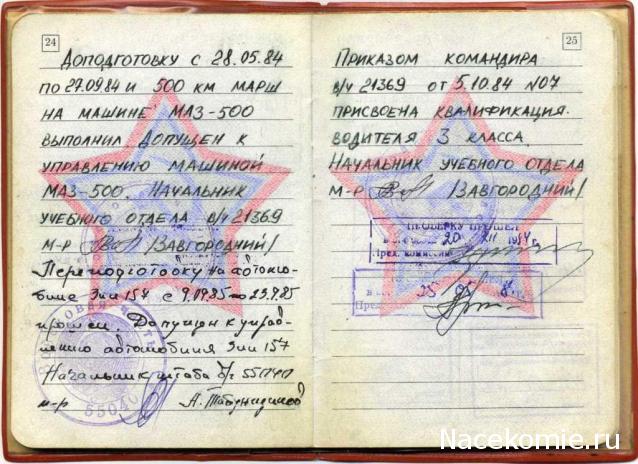 24
Доподготовку с 28.05.84
по 27.09.84 и 500 км марш
на машине МАЗ-500
выполнил. Допущен к
управлению машиной
МАЗ-500. Начальник
учебного отдела в/ч 21369
м-р /Завгородний/
Переподготовку на автомо-
биле Зил 157 с 9.09.85 по 23.9.85
прошел. Допущен к управ-
лению автомобиля Зил 157
Начальник штаба
м-р А.
55040
25
Приказом командира
в/ч 21369 от 5.10.84 №07
присвоена квалификация
водителя 3 класса.
Начальник учебного отдела
м-р /Завгородний/
ПРОВЕРКУ ПРОШЕЛ
20 1984г.
Пред. комиссии
25 05
Nacekomie.ru